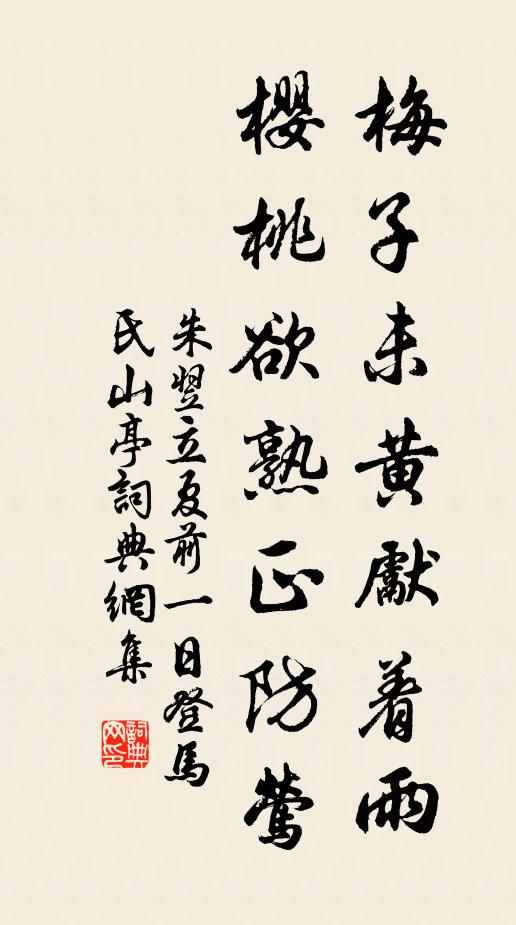 梅子未黄獻着雨
櫻桃欲熟正防鶯
朱翌立夏前一日登馬
氏山亭詞典網集
詞典網印